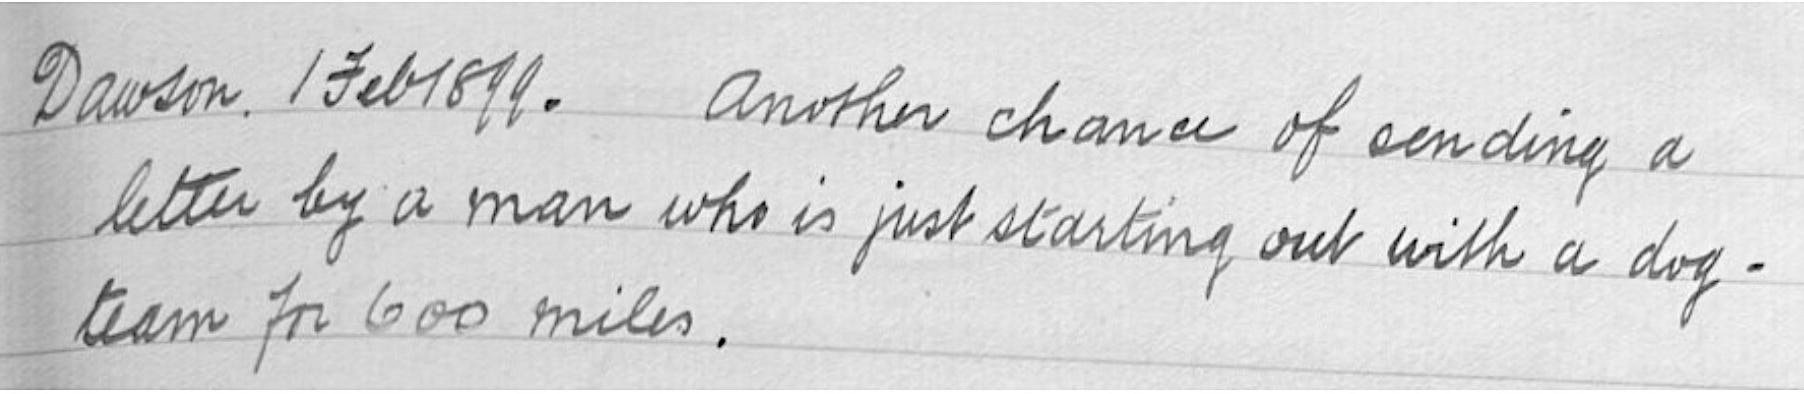 Dawson. 1 Feb 1899. Another chance of sending a
letter by a man who is just starting out with a dog-
team for 600 miles.